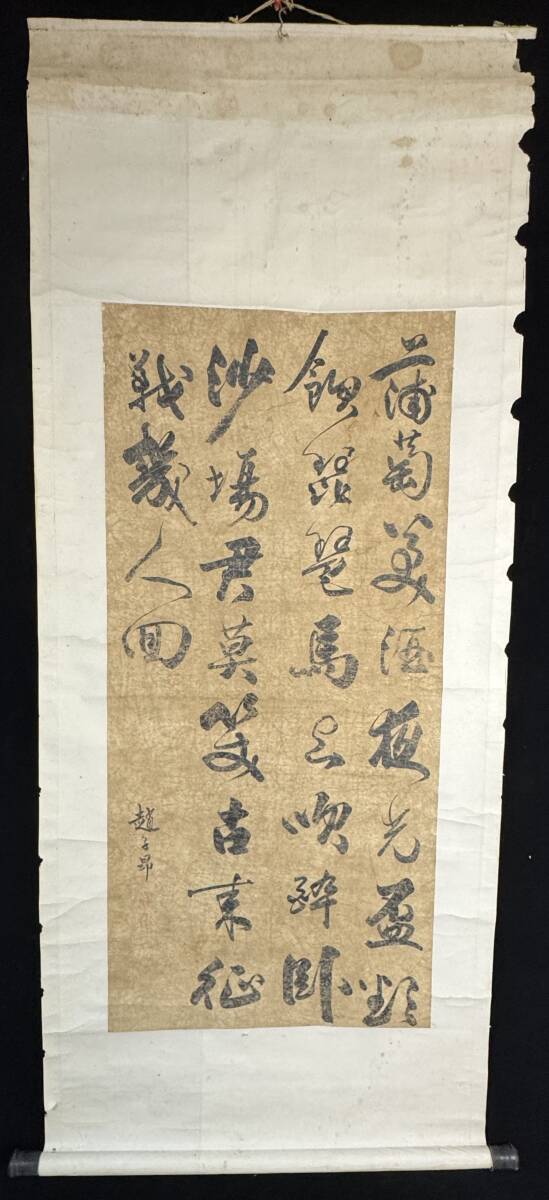 蒲萄美酒夜光盃欲
飲琵琶馬上吹醉臥
沙場君莫笑古来征
戦幾人回
趙子昂